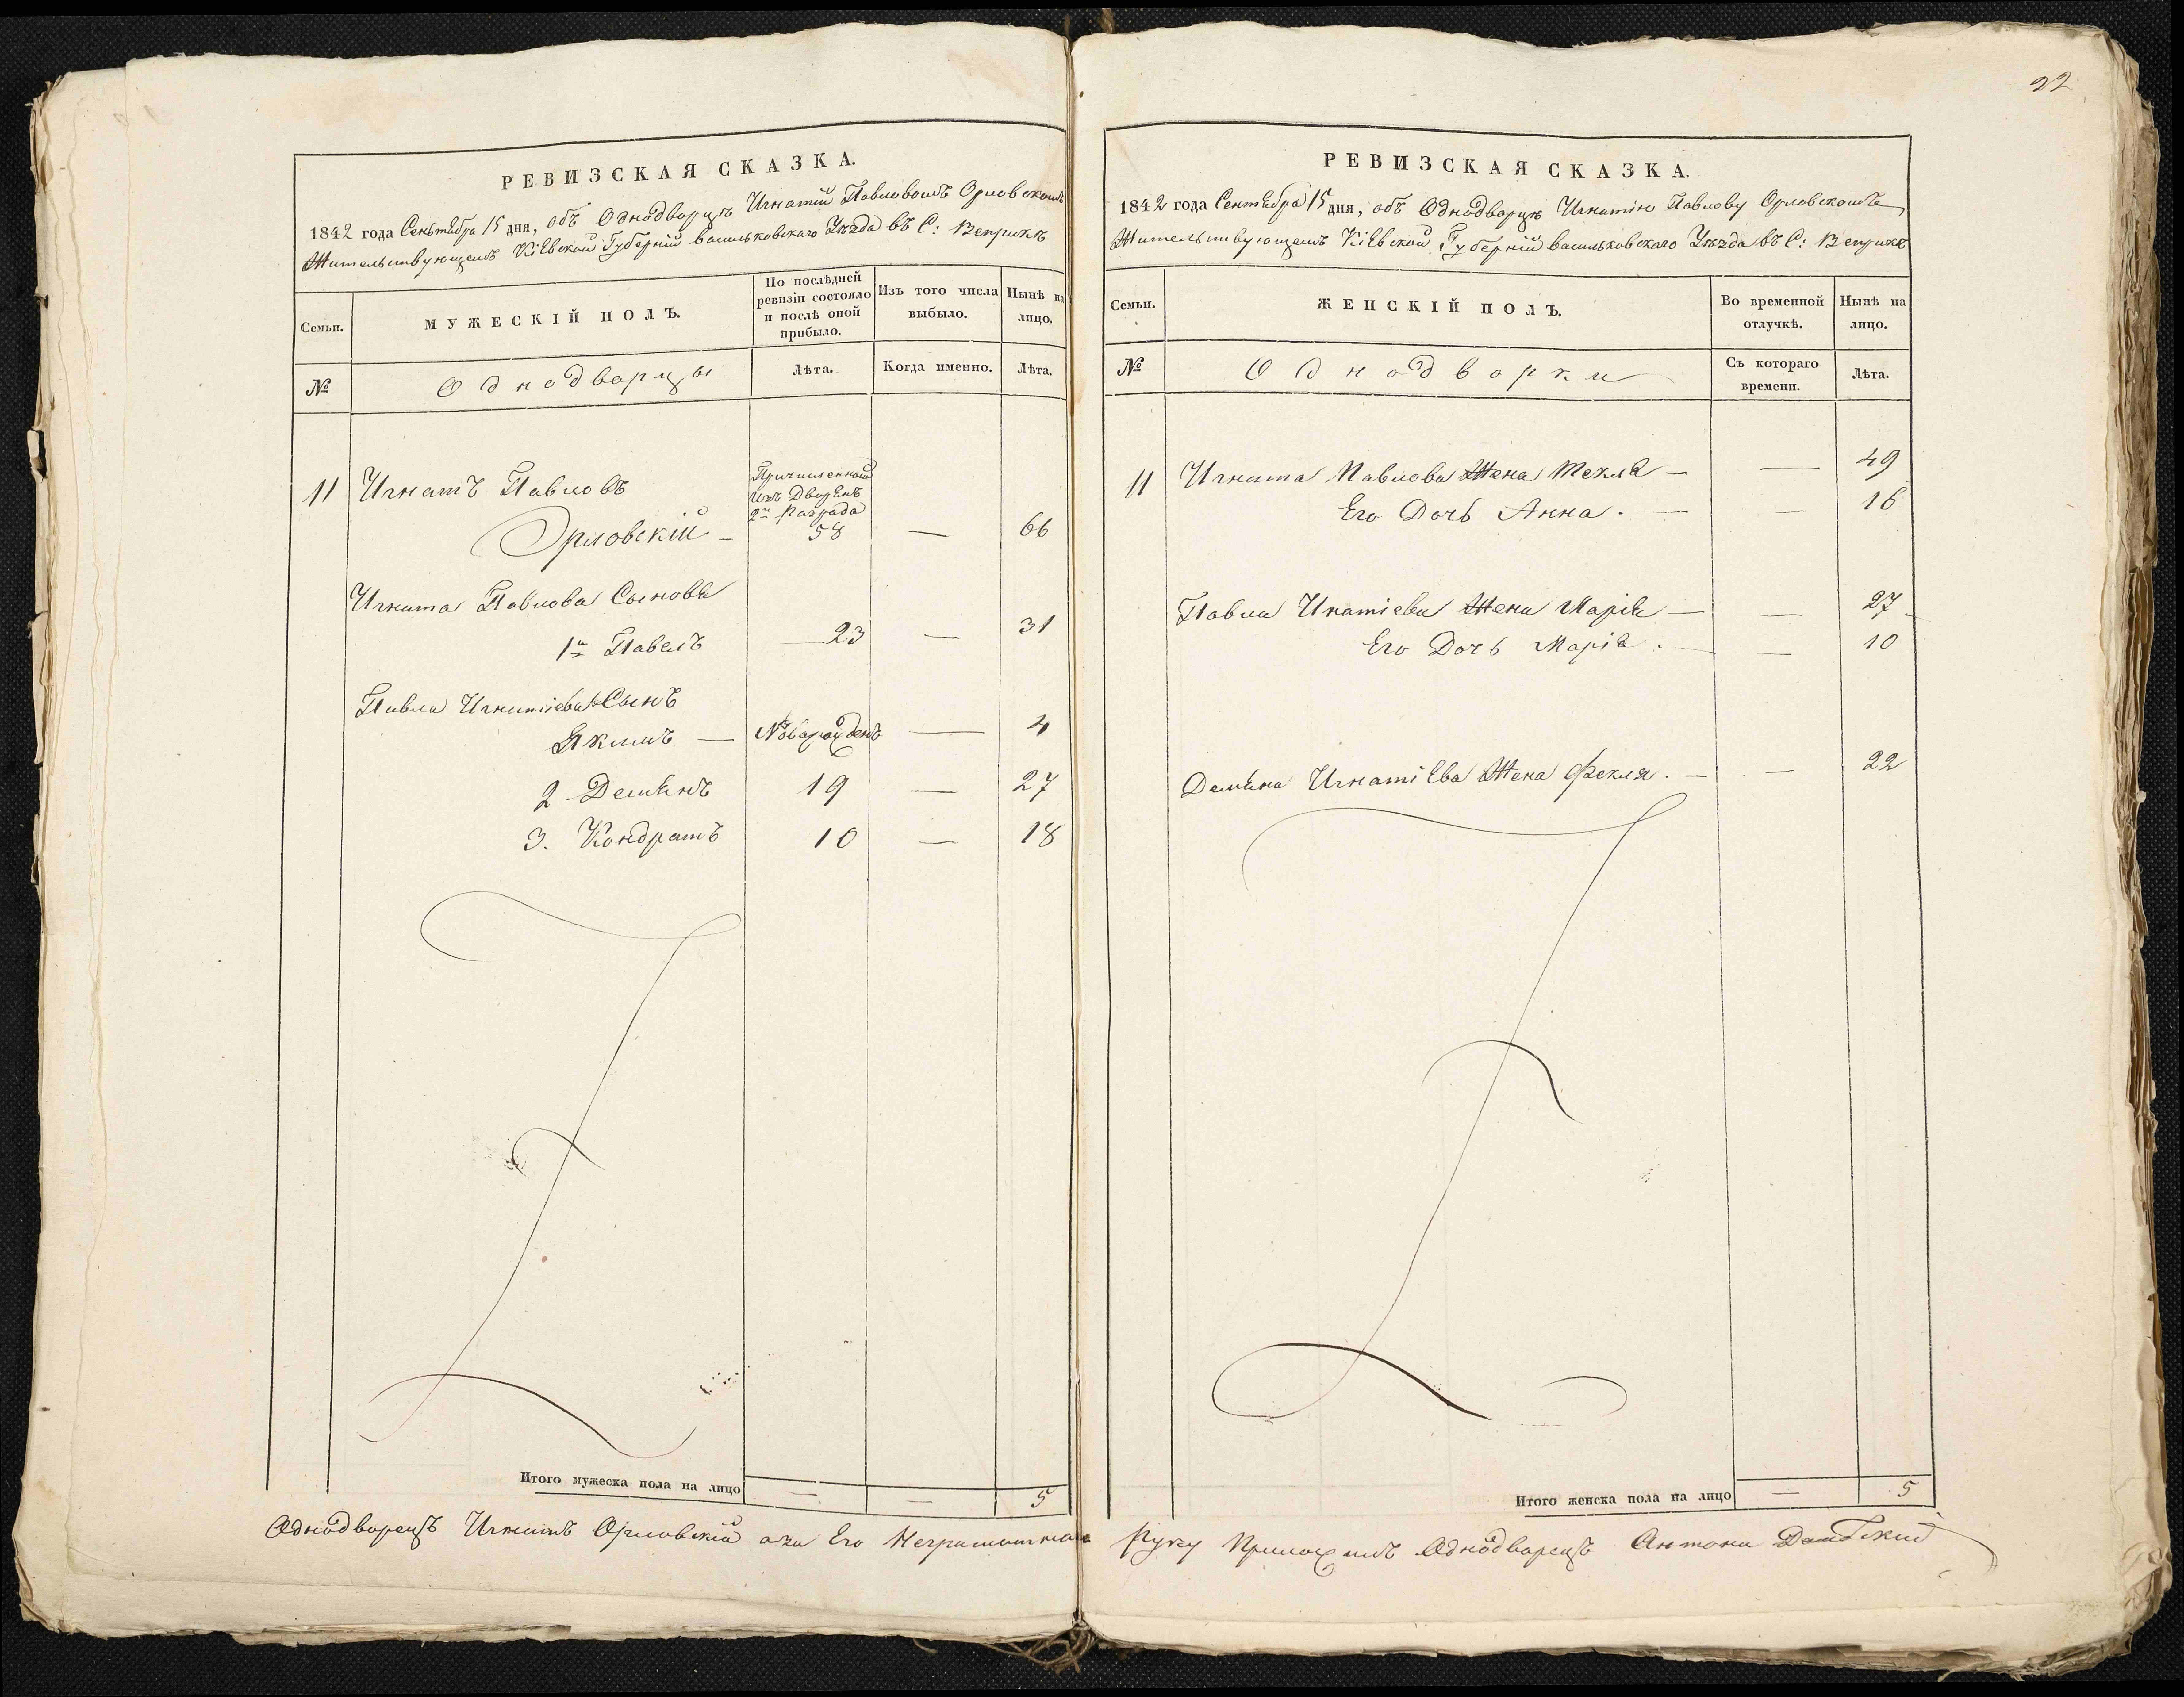 22
РЕВИЗСКАЯ СКАЗКА.
1842 года Сентября 15 дня, объ Однодворцѣ Игнатіи Павловомъ Орловскомъ
Жительствующемъ Кіевской Губерніи Васильковскаго Уѣзда въ С: Веприкѣ
Семьи.
МУЖЕСКІЙ ПОЛЪ.
По послѣдней ревизіи состояло и послѣ оной прибыло.
Изъ того числа выбыло.
Нынѣ на лицо.
№
Однодворцы
Лѣта.
Когда именно.
Лѣта.
Причисленный
изъ Дворянъ
2го Разряда
11 Игнатъ Павловъ
Орловскій — 58 — 66
Игната Павлова Сыновья
1й Павелъ — 23 — 31
Павла Игнатіева Сынъ
Якимъ — Новорожденъ — 4
2 Демьянъ 19 — 27
3. Кондратъ 10 — 18
Итого мужеска пола на лицо — — 5
РЕВИЗСКАЯ СКАЗКА.
1842 года Сентября 15 дня, объ Однодворцѣ Игнатію Павлову Орловскомъ
Жительствующемъ Кіевской Губерніи Васильковскаго Уѣзда въ С: Веприкѣ
Семьи.
ЖЕНСКІЙ ПОЛЪ.
Во временной отлучкѣ.
Нынѣ на лицо.
№
Однодворки
Съ котораго времени.
Лѣта.
11 Игната Павлова Жена Текля — — 49
Его Дочь Анна. — — 16
Павла Игнатіева Жена Марія — — 27
Его Дочь Марія. — — 10
Демьяна Игнатіева Жена Фекля. — — 22
Итого женска пола на лицо — 5
Однодворецъ Игнатъ Орловскій а за Его Неграмотнаго Руку Приложилъ Однодворецъ Антони